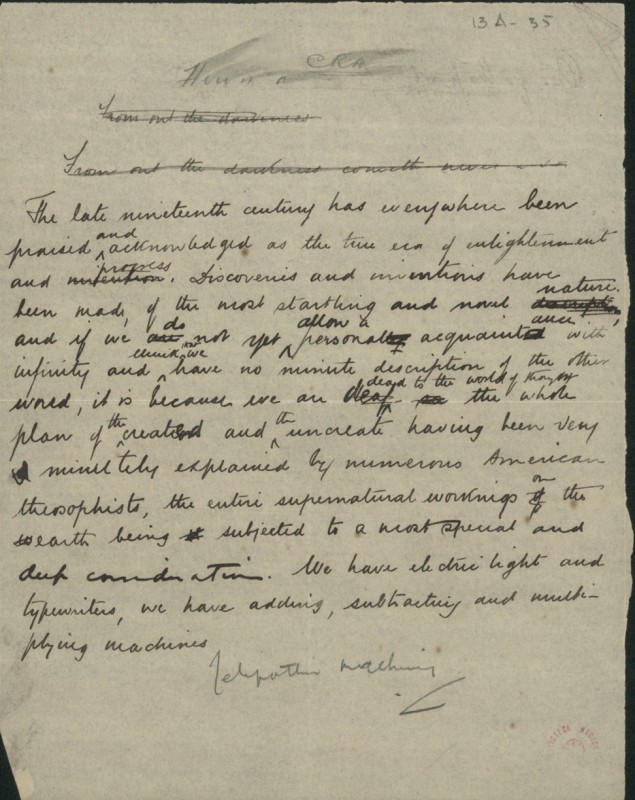 13 A - 35
CRA
From out the darkness
From out the darkness cometh
The late nineteenth century has everywhere been
praised and acknowledged as the true era of enlightenment
and invention progress. Discoveries and inventions have
been made, of the most startling and novel description nature,
and if we are do not yet allow a personal acquaintance with
infinity and we have no minute description of the other
world, it is because we are deaf dead to the world of thought the whole
plan of the created and the uncreate having been very
minutely explained by numerous American
theosophists, the entire supernatural workings of on the
earth being subjected to a most special and
deep consideration. We have electric light and
typewriters, we have adding, subtracting and multi-
plying machines
Telepathic machines